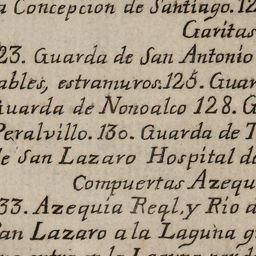 a Concepcion de Santiago. 12
Garitas
23. Guarda de San Antonio
ables, estramuros. 125. Guar
Guarda de Nonoalco 128. G
Peralvillo. 130. Guarda de T
de San Lazaro Hospital de
Compuertas Azequ
33. Azequia Real, y Rio d
an Lazaro a la Laguna q